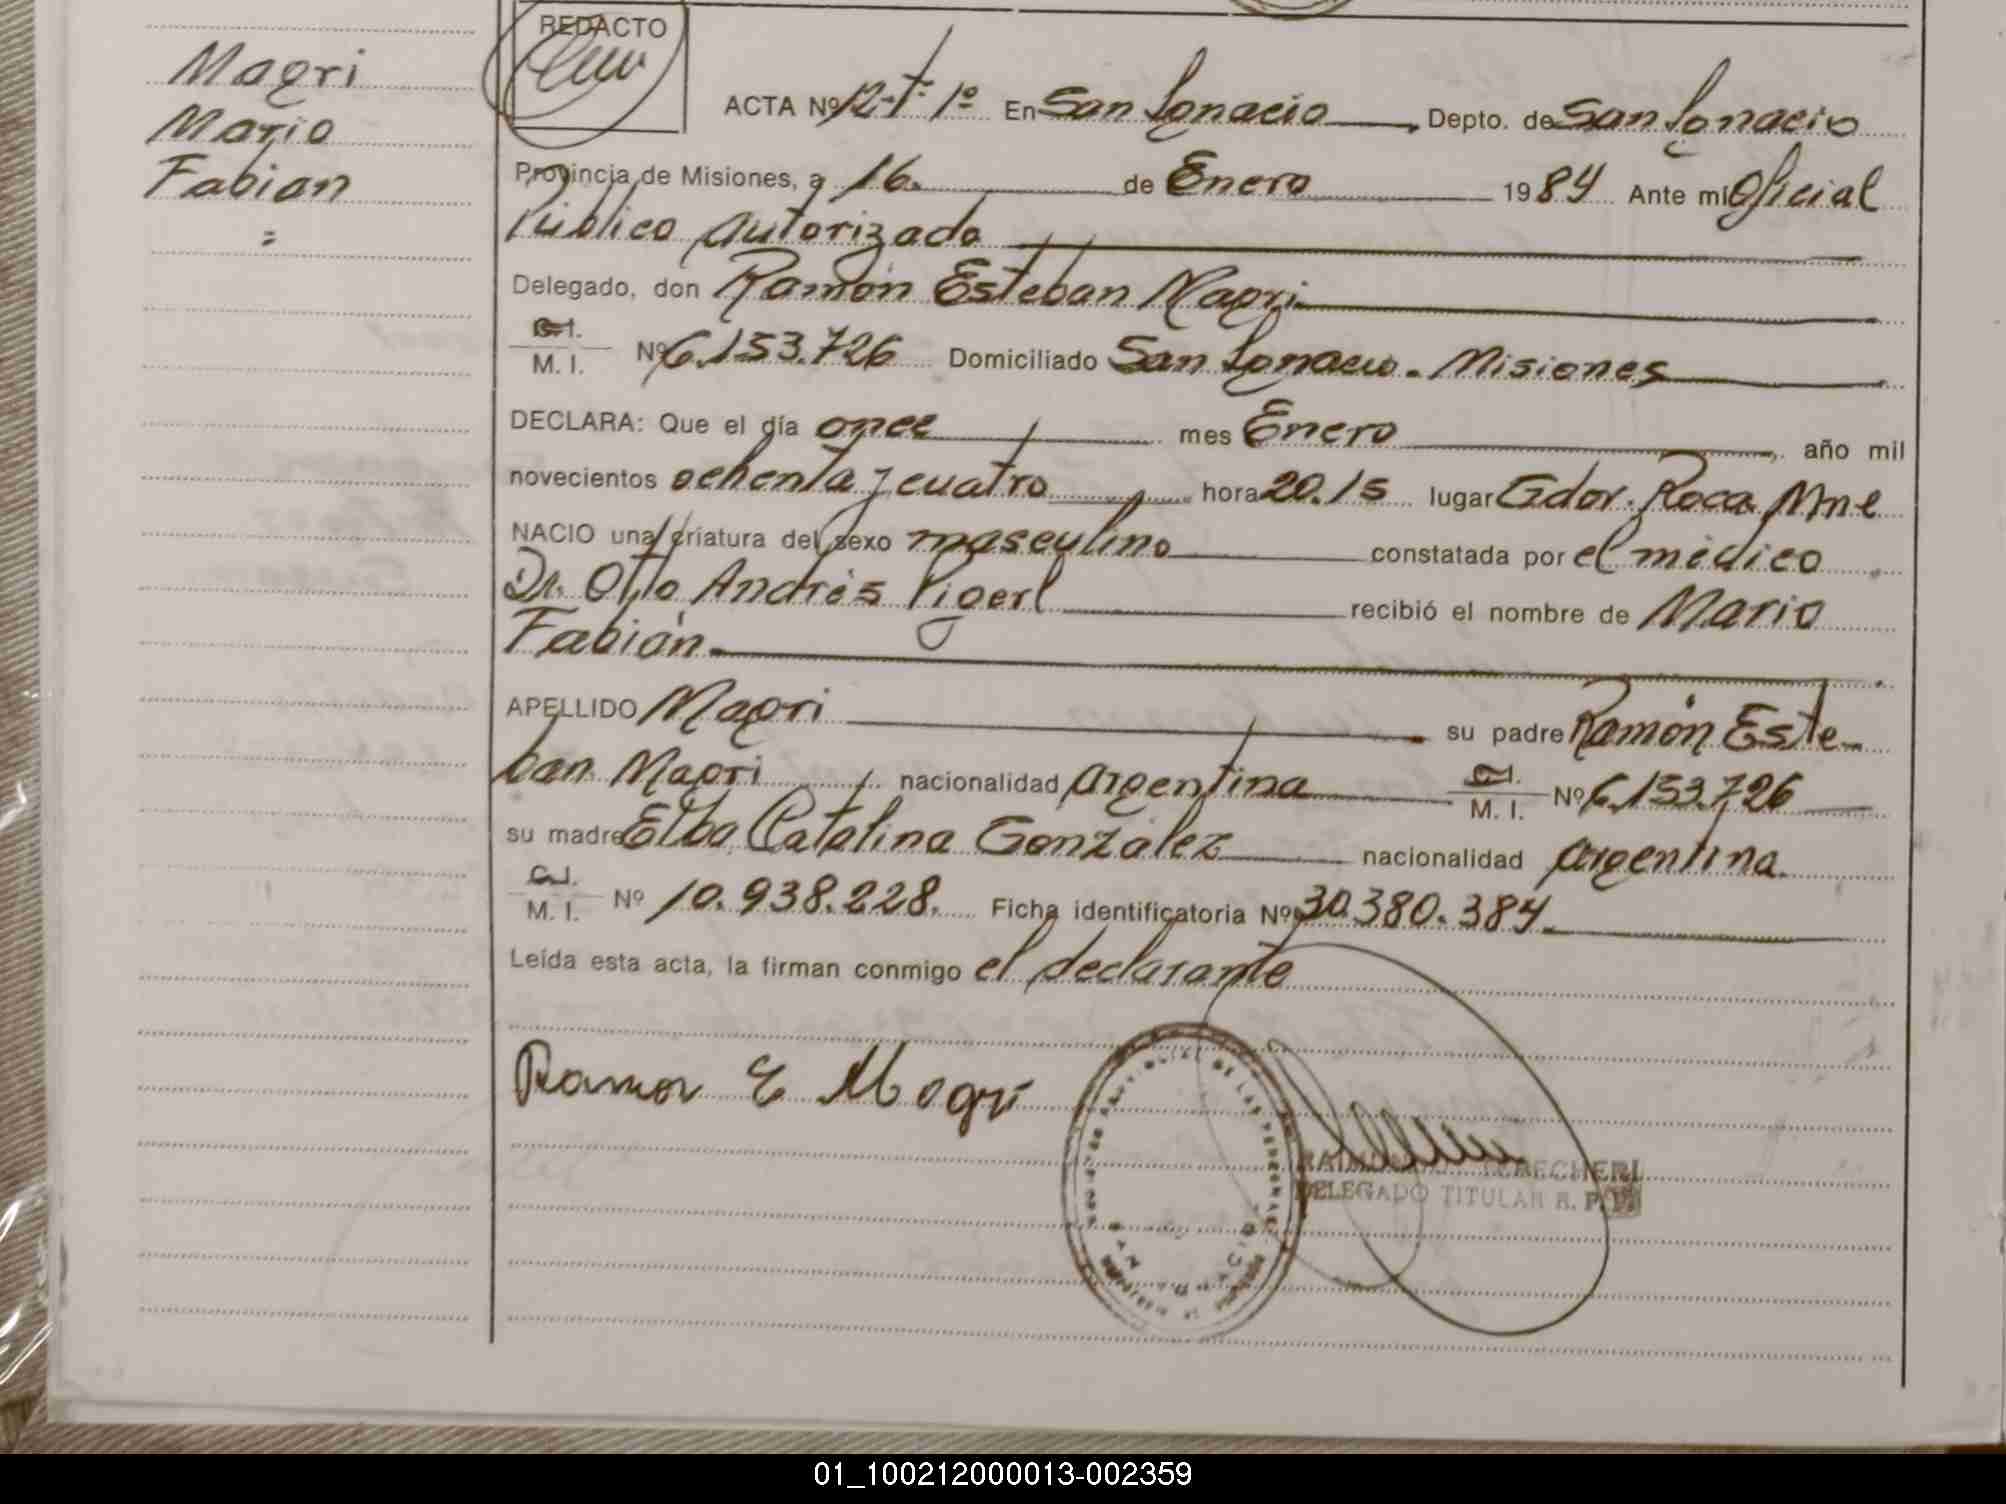 REDACTO
Magri
Mario
Fabian
=
ACTA Nº 12-T- 1º En San Ignacio Depto. de San Ignacio
Provincia de Misiones, a 16. de Enero 1984 Ante mi Oficial
Público Autorizado
Delegado, don Ramón Esteban Magri
C.I.
M. I. Nº 6.153.726 Domiciliado San Ignacio. Misiones
DECLARA: Que el día once mes Enero, año mil
novecientos ochenta y cuatro hora 20.15 lugar Gdor. Roca Mnes
NACIO una criatura del sexo masculino constatada por el médico
Dr. Otto Andrés Pigerl recibió el nombre de Mario
Fabián.
APELLIDO Magri su padre Ramón Este-
ban Magri nacionalidad Argentina C.I.
M. I. Nº 6.153.726
su madre Elba Catalina González nacionalidad Argentina.
C.I.
M. I. Nº 10.938.228. Ficha identificatoria Nº 30.380.384.
Leída esta acta, la firman conmigo el declarante
Ramon E Magri
DELEGADO TITULAR R. P.
01_100212000013-002359